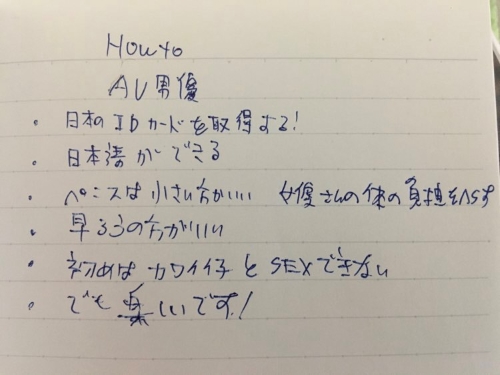 How to
AV男優
・日本のIDカードを取得する!
・日本語ができる
・ペニスは小さい方がいい 女優さんの体の負担をへらす
・早ろうの方がいい
・初めはカワイイ子とSEXできない
・でも楽しいです!